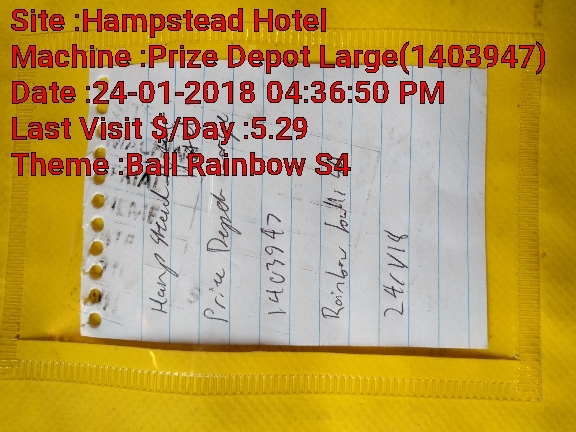 Site :Hampstead Hotel
Machine :Prize Depot Large(1403947)
Date :24-01-2018 04:36:50 PM
Last Visit $/Day :5.29
Theme :Ball Rainbow S4
Hampstead
Prize Depot
1403947
Rainbow balls
24/1/18